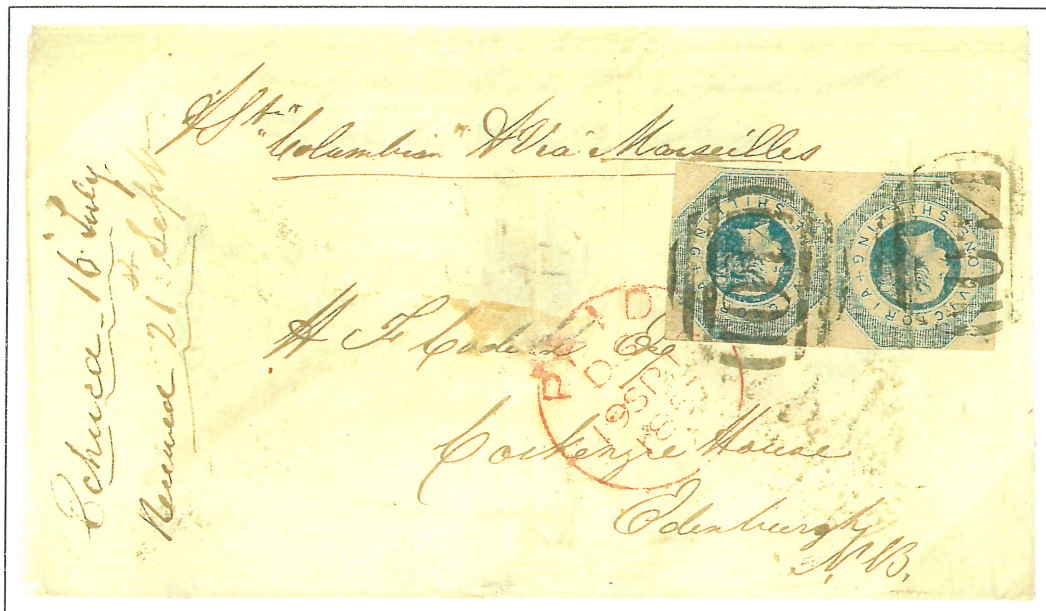 "Columbian" Via Marseilles
Echuca 16 July
Received 21st Sept
H F Cadell Esq
Cockenzie House
Edenburgh
N.B.
PAID
19 SP
ONE SHILLING VICTORIA
ONE SHILLING VICTORIA